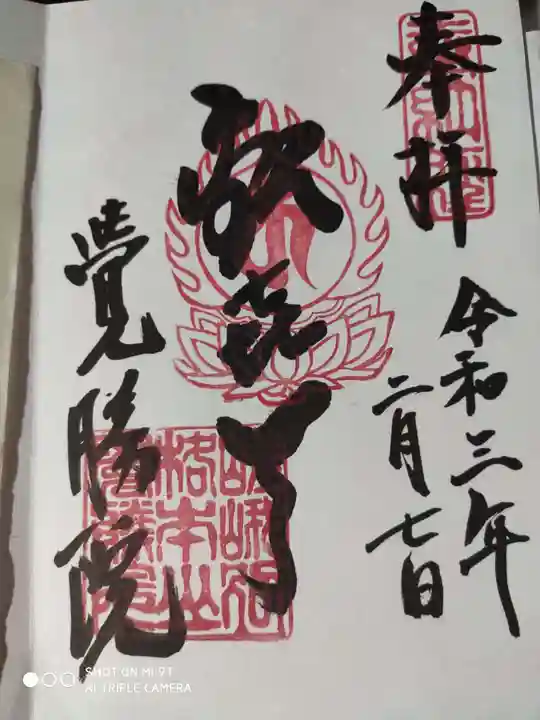 奉拝
令和三年
二月七日
歓喜天
覺勝院
SHOT ON MI 9T
AI TRIPLE CAMERA